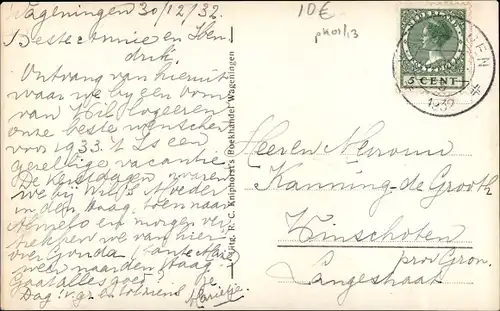 Wageningen 30/12/32.
Beste Annie en Hen
drik,
Ontvang van hieruit
waar we bij een oom
van Wil logeeren
onze beste wenschen
voor 1933. 't Is een
gezellige vacantie
De Kerstdagen waren
we bij Wil's Moeder
in den Haag, toen naar
Almelo en morgen ver
trekken we van hier
over Gouda
weer naar den Haag.
Gaat alles goed?
Dag! v. gr. en tot ziens
Marietje.
10€
pk01/13
Uitg. R. C. Kniphorst's Boekhandel Wageningen
5 CENT
1932
Heeren Mevrouw
Kanning-de Grooth
Winschoten
prov Gron.
Langestraat